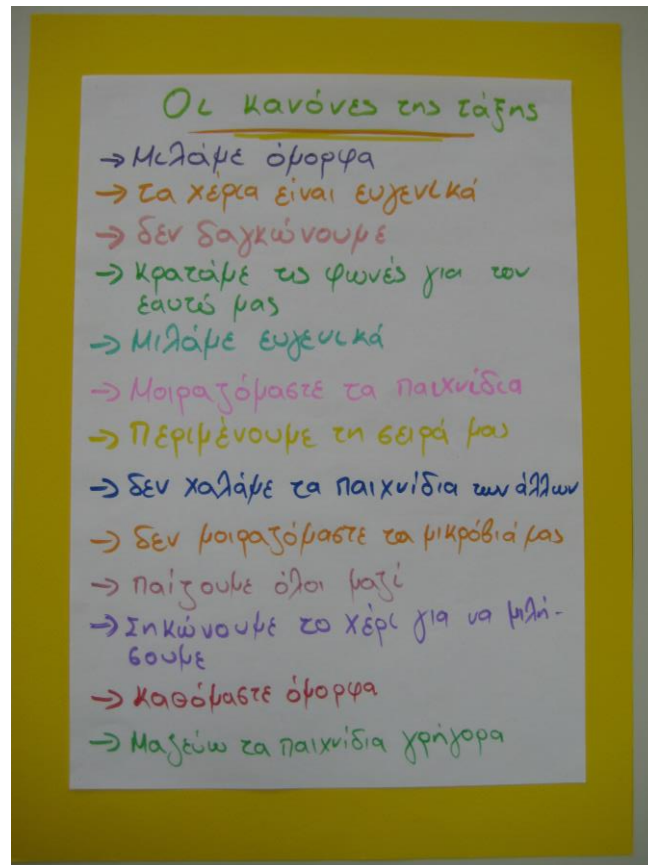 Οι κανόνες της τάξης
→ Μιλάμε όμορφα
→ τα χέρια είναι ευγενικά
→ δεν δαγκώνουμε
→ κρατάμε τις φωνές για τον
εαυτό μας
→ Μιλάμε ευγενικά
→ Μοιραζόμαστε τα παιχνίδια
→ Περιμένουμε τη σειρά μας
→ δεν χαλάμε τα παιχνίδια των άλλων
→ δεν μοιραζόμαστε τα μικρόβιά μας
→ παίζουμε όλοι μαζί
→ Σηκώνουμε το χέρι για να μιλή-
σουμε
→ καθόμαστε όμορφα
→ Μαζεύω τα παιχνίδια γρήγορα